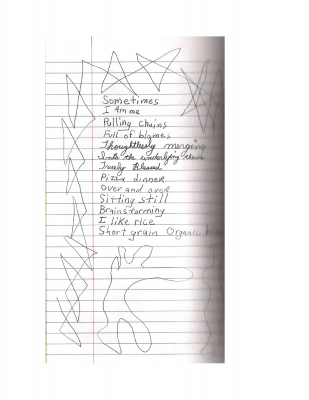 Sometimes
I Am me
Pulling chains
Full of blames
Thoughtlessly merging
Into the underlying
Truely Blessed
Pizza dinner
Over and over
Sitting still
Brainstorming
I like rice
Short grain Organic